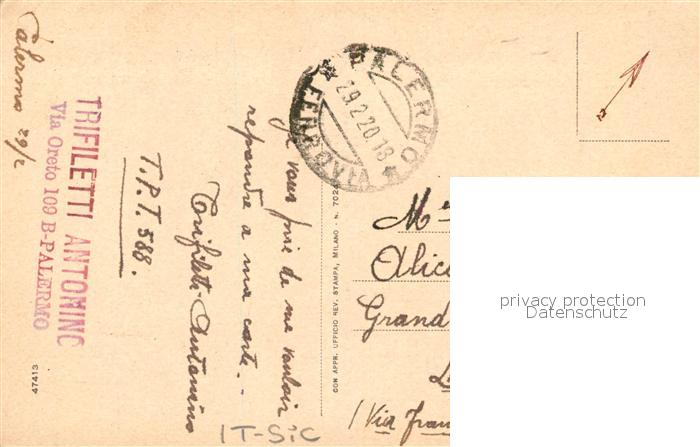 Palermo 29/2
TRIFILETTI ANTONINO
Via Oreto 109 B-PALERMO
T.P.T. 588.
Je vous prie de me vouloir
repondre a ma carte.
Trifiletti Antonino
PALERMO
FERROVIA
29.2.20.18
CON APPR. UFFICIO REV. STAMPA, MILANO - N. 702
47413
Alic
Grand
(Via Fran
IT-SIC
privacy protection
Datenschutz